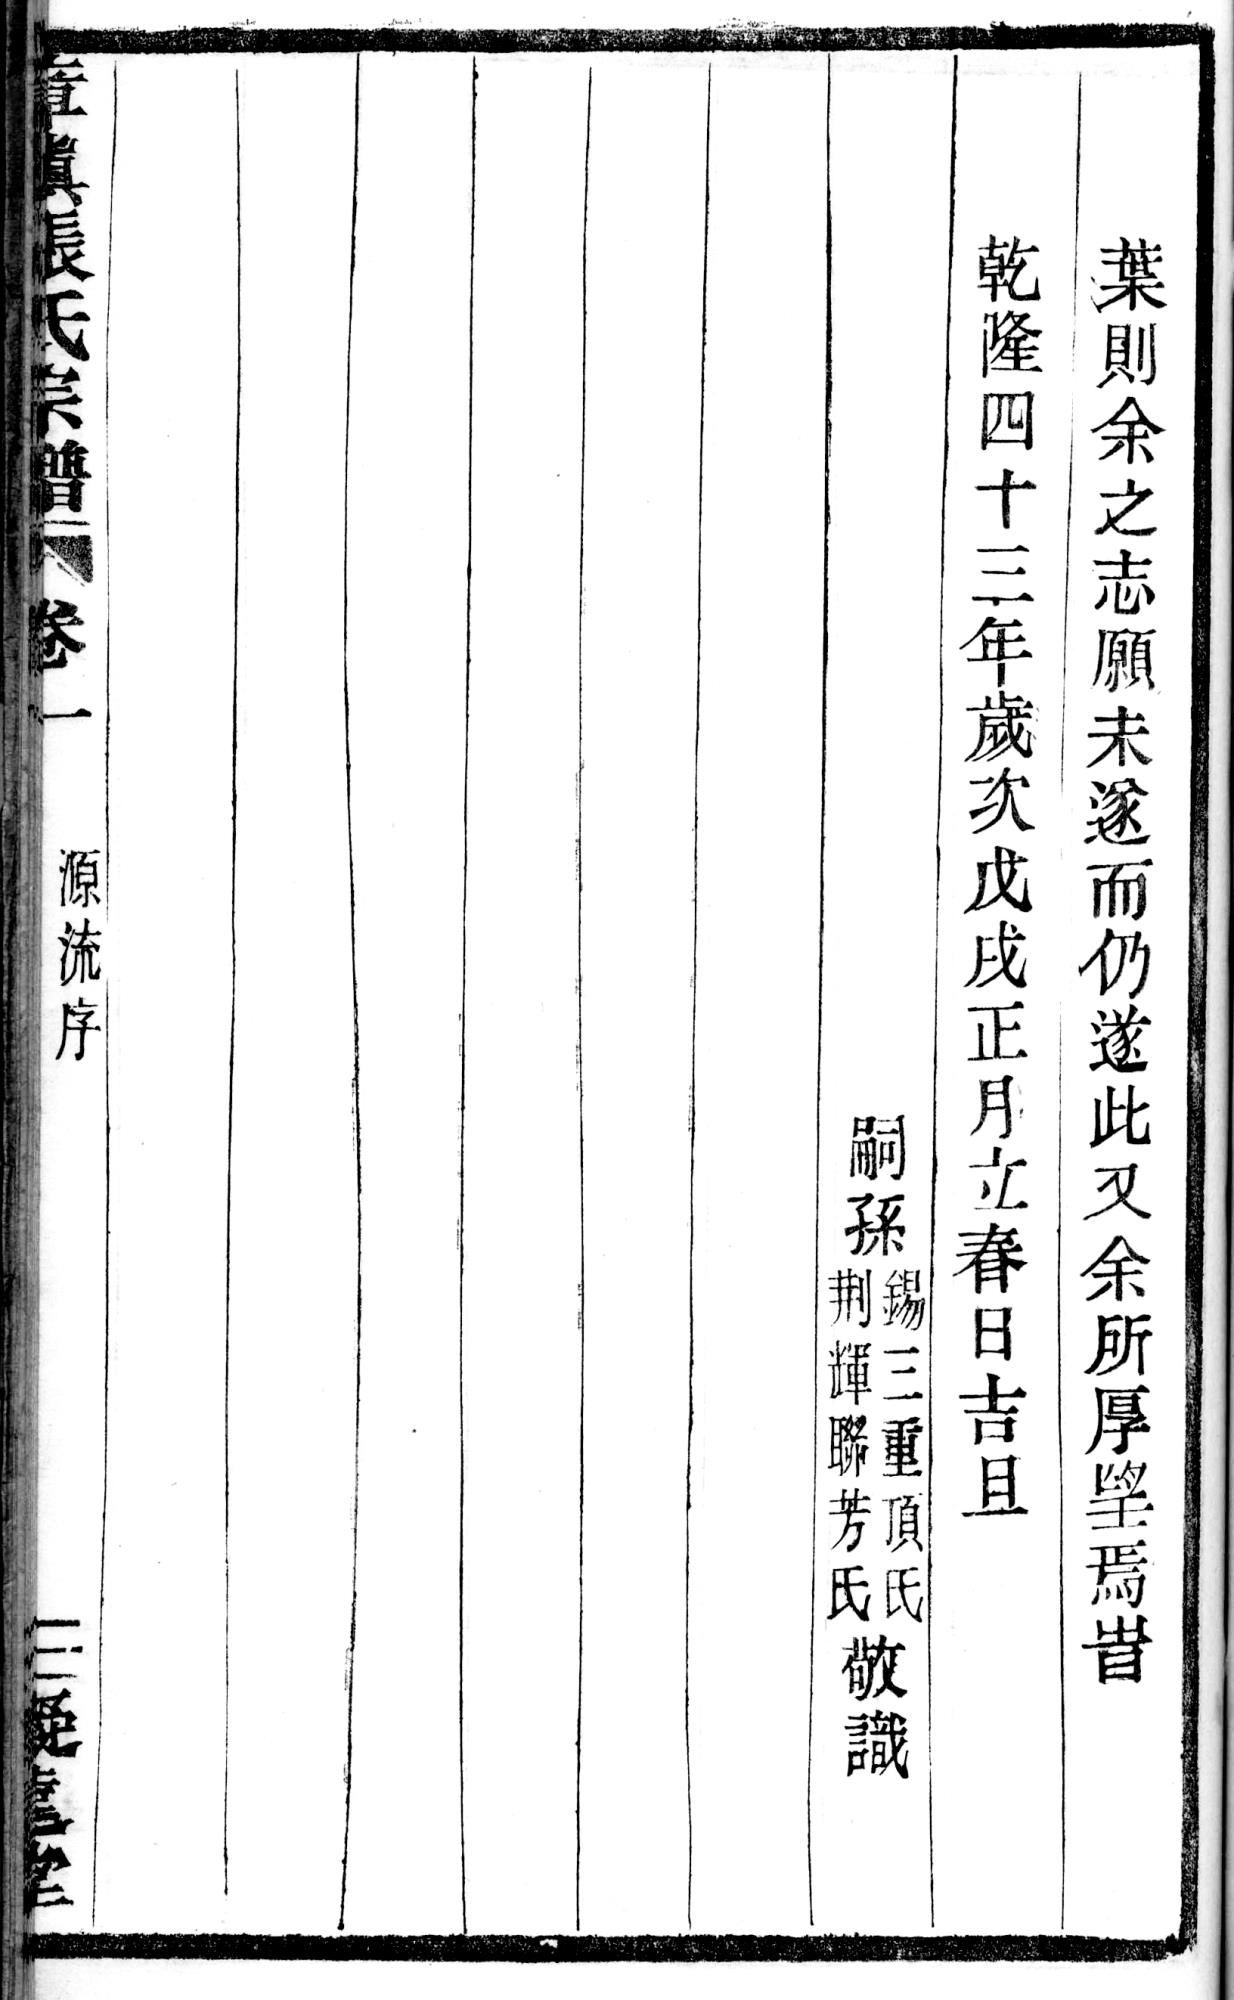 葉則余之志願未遂而仍遂此又余所厚望焉旹
乾隆四十三年歲次戊戌正月立春日吉旦
嗣孫
錫三重頂氏
荆輝聯芳氏
敬識
張氏宗譜 卷一 源流序 三 堂